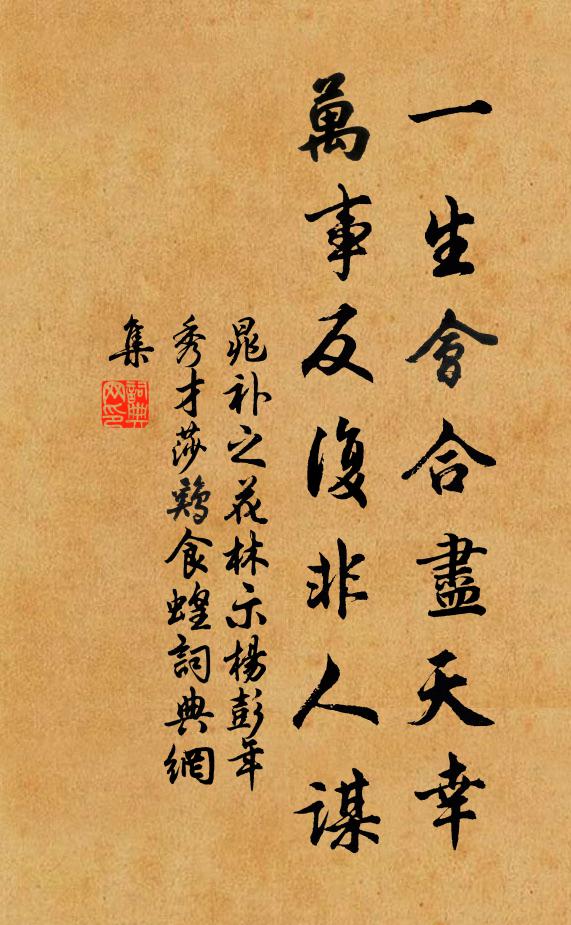 一生會合盡天幸
萬事反復非人謀
晁補之花林示楊彭年
秀才莎鶏食蝗詞典網
集
詞典網印